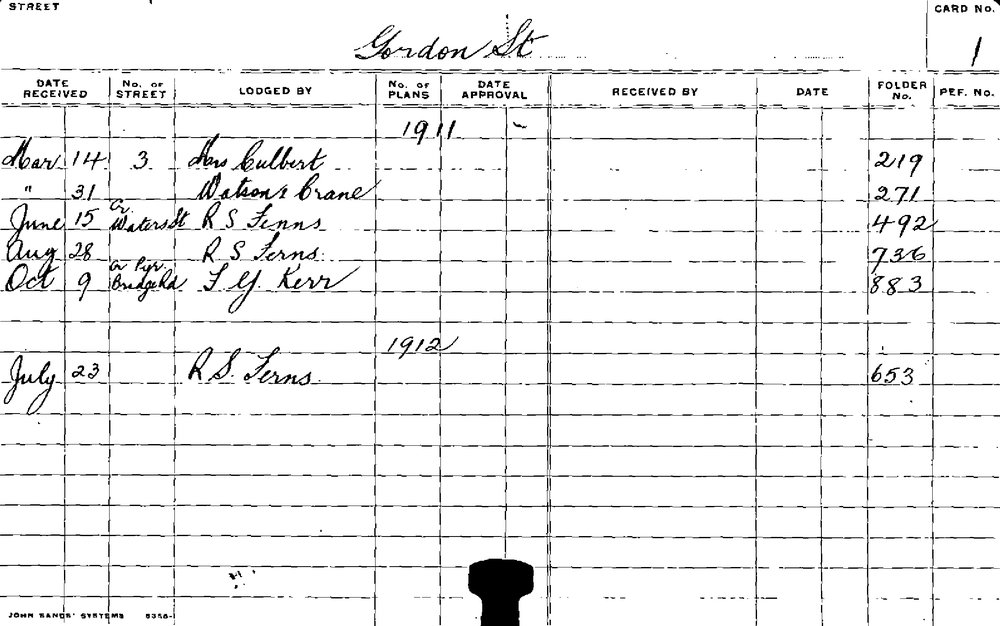 STREET
CARD No.
Gordon St
1
DATE RECEIVED No. OF STREET LODGED BY No. OF PLANS DATE APPROVAL RECEIVED BY DATE FOLDER No. REF. No.
1911
Mar 14 3 Mrs Culbert 219
" 31 Watson & Crane 271
June 15 Cr Waters St R S Fenns 492
Aug 28 R S Ferns 736
Oct 9 Cr Pyr. Bridge Rd F Y. Kerr 883
1912
July 23 R S. Ferns 653
JOHN SANDS' SYSTEMS